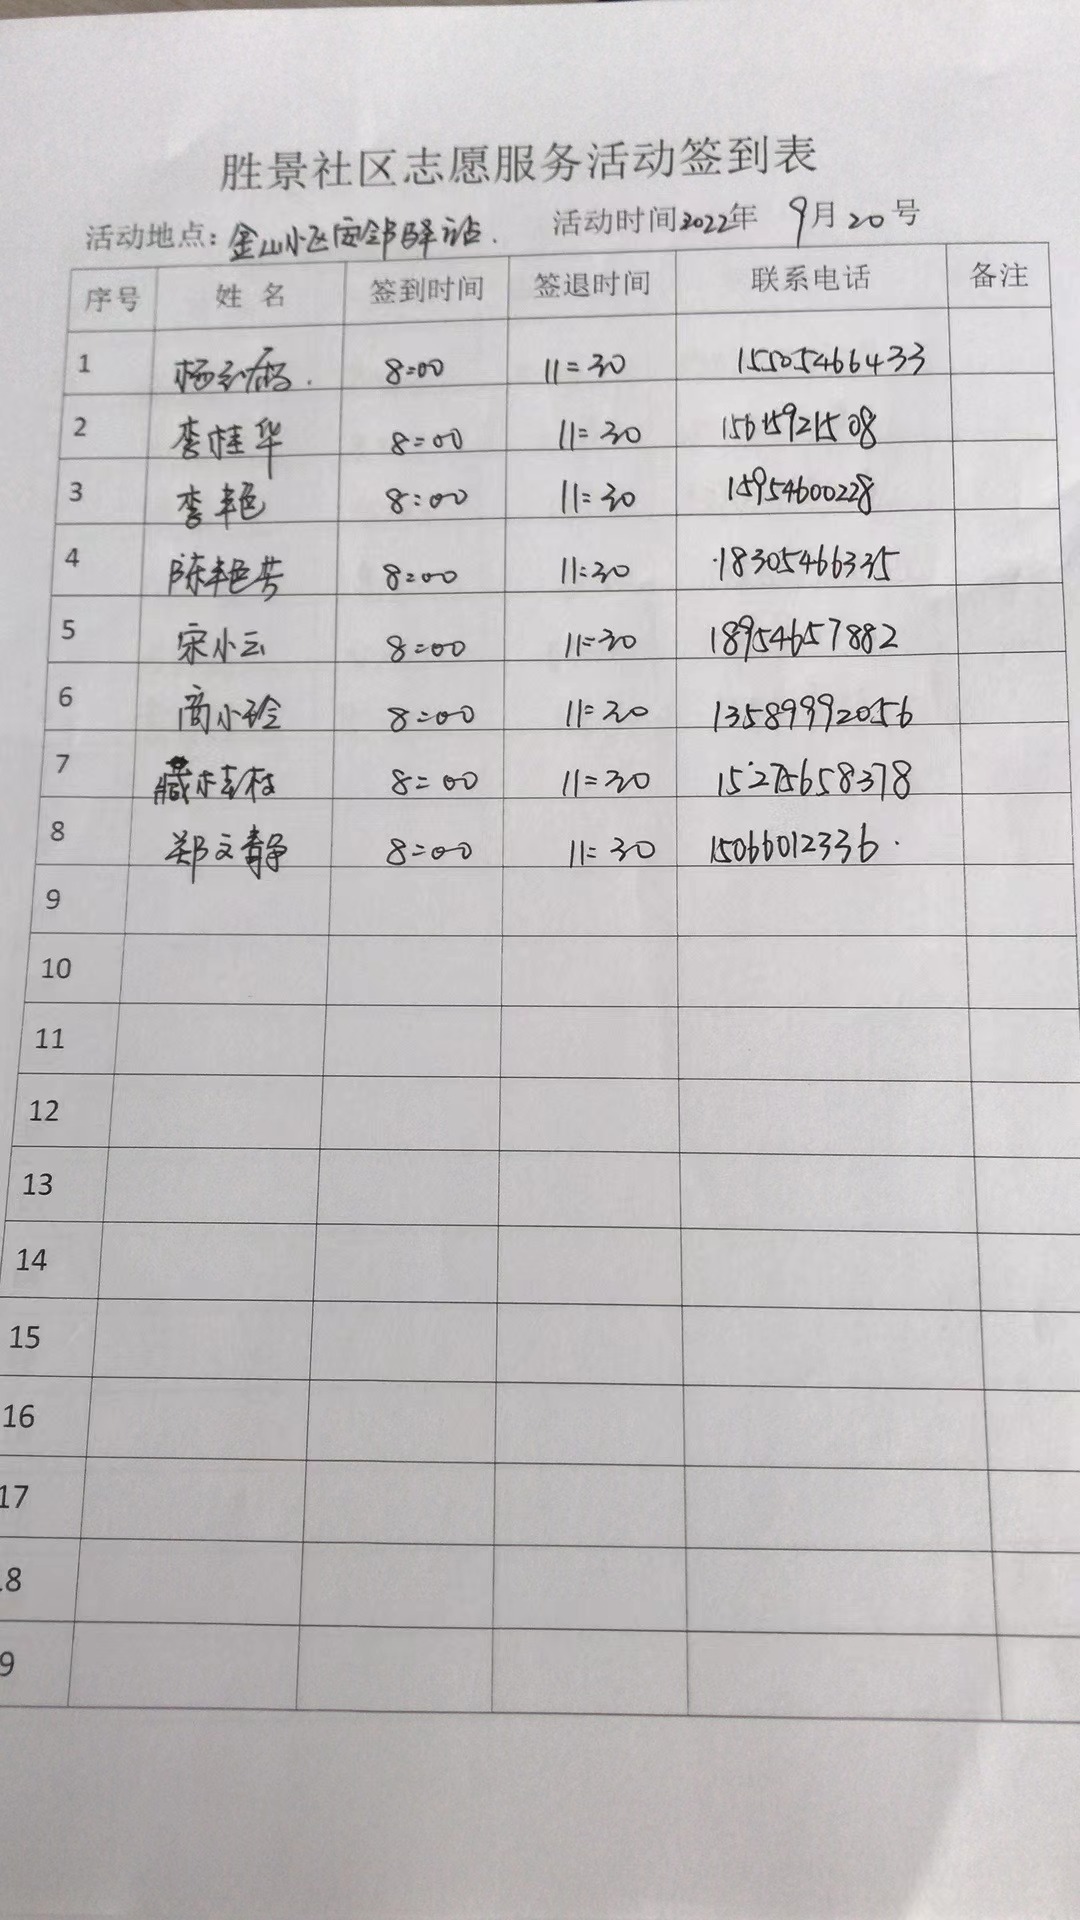 胜景社区志愿服务活动签到表
活动地点：金山小区安邻驿站. 活动时间2022年 9月20号
序号 姓名 签到时间 签退时间 联系电话 备注
1 杨 8:00 11:30 15505466433
2 李桂华 8:00 11:30 508
3 李艳 8:00 11:30 15954600228
4 陈艳芳 8:00 11:30 18305466335
5 宋小云 8:00 11:30 18954657882
6 商小玲 8:00 11:30 13589992056
7 藏桂枝 8:00 11:30 15275658378
8 郑文静 8:00 11:30 15066012336
9
10
11
12
13
14
15
16
17
8
9